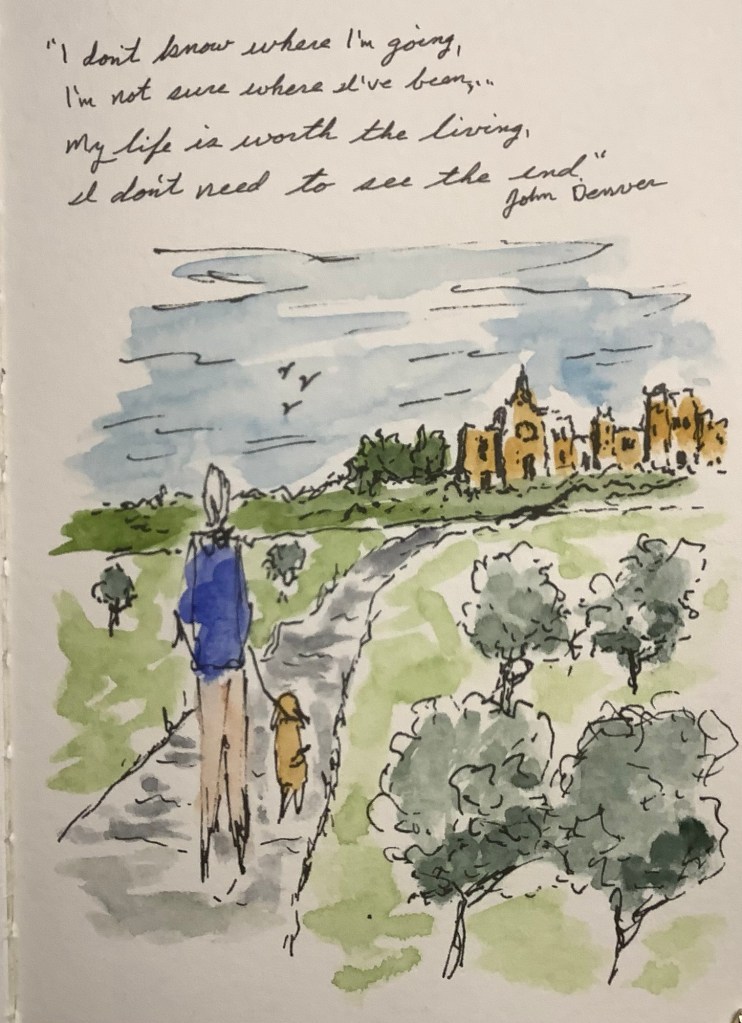 "I don't know where I'm going,
I'm not sure where I've been,..
My life is worth the living,
I don't need to see the end."
John Denver